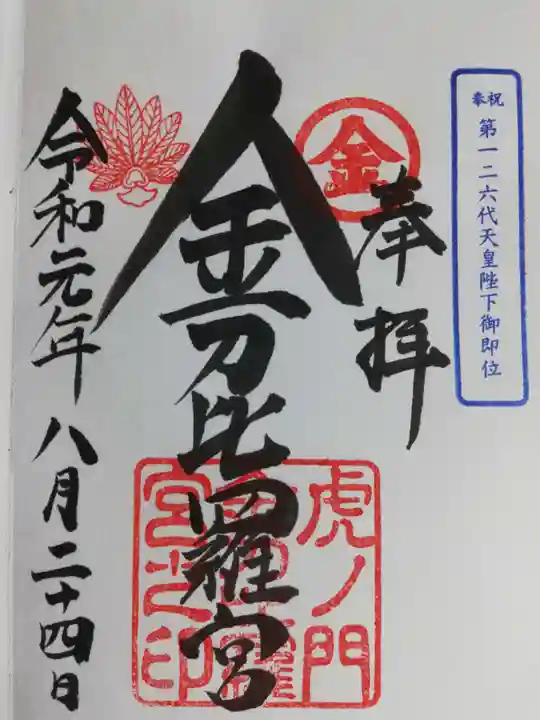 奉祝 第一二六代天皇陛下御即位
金
奉拝
金刀比羅宮
虎ノ門
金刀比羅
宮之印
令和元年 八月二十四日